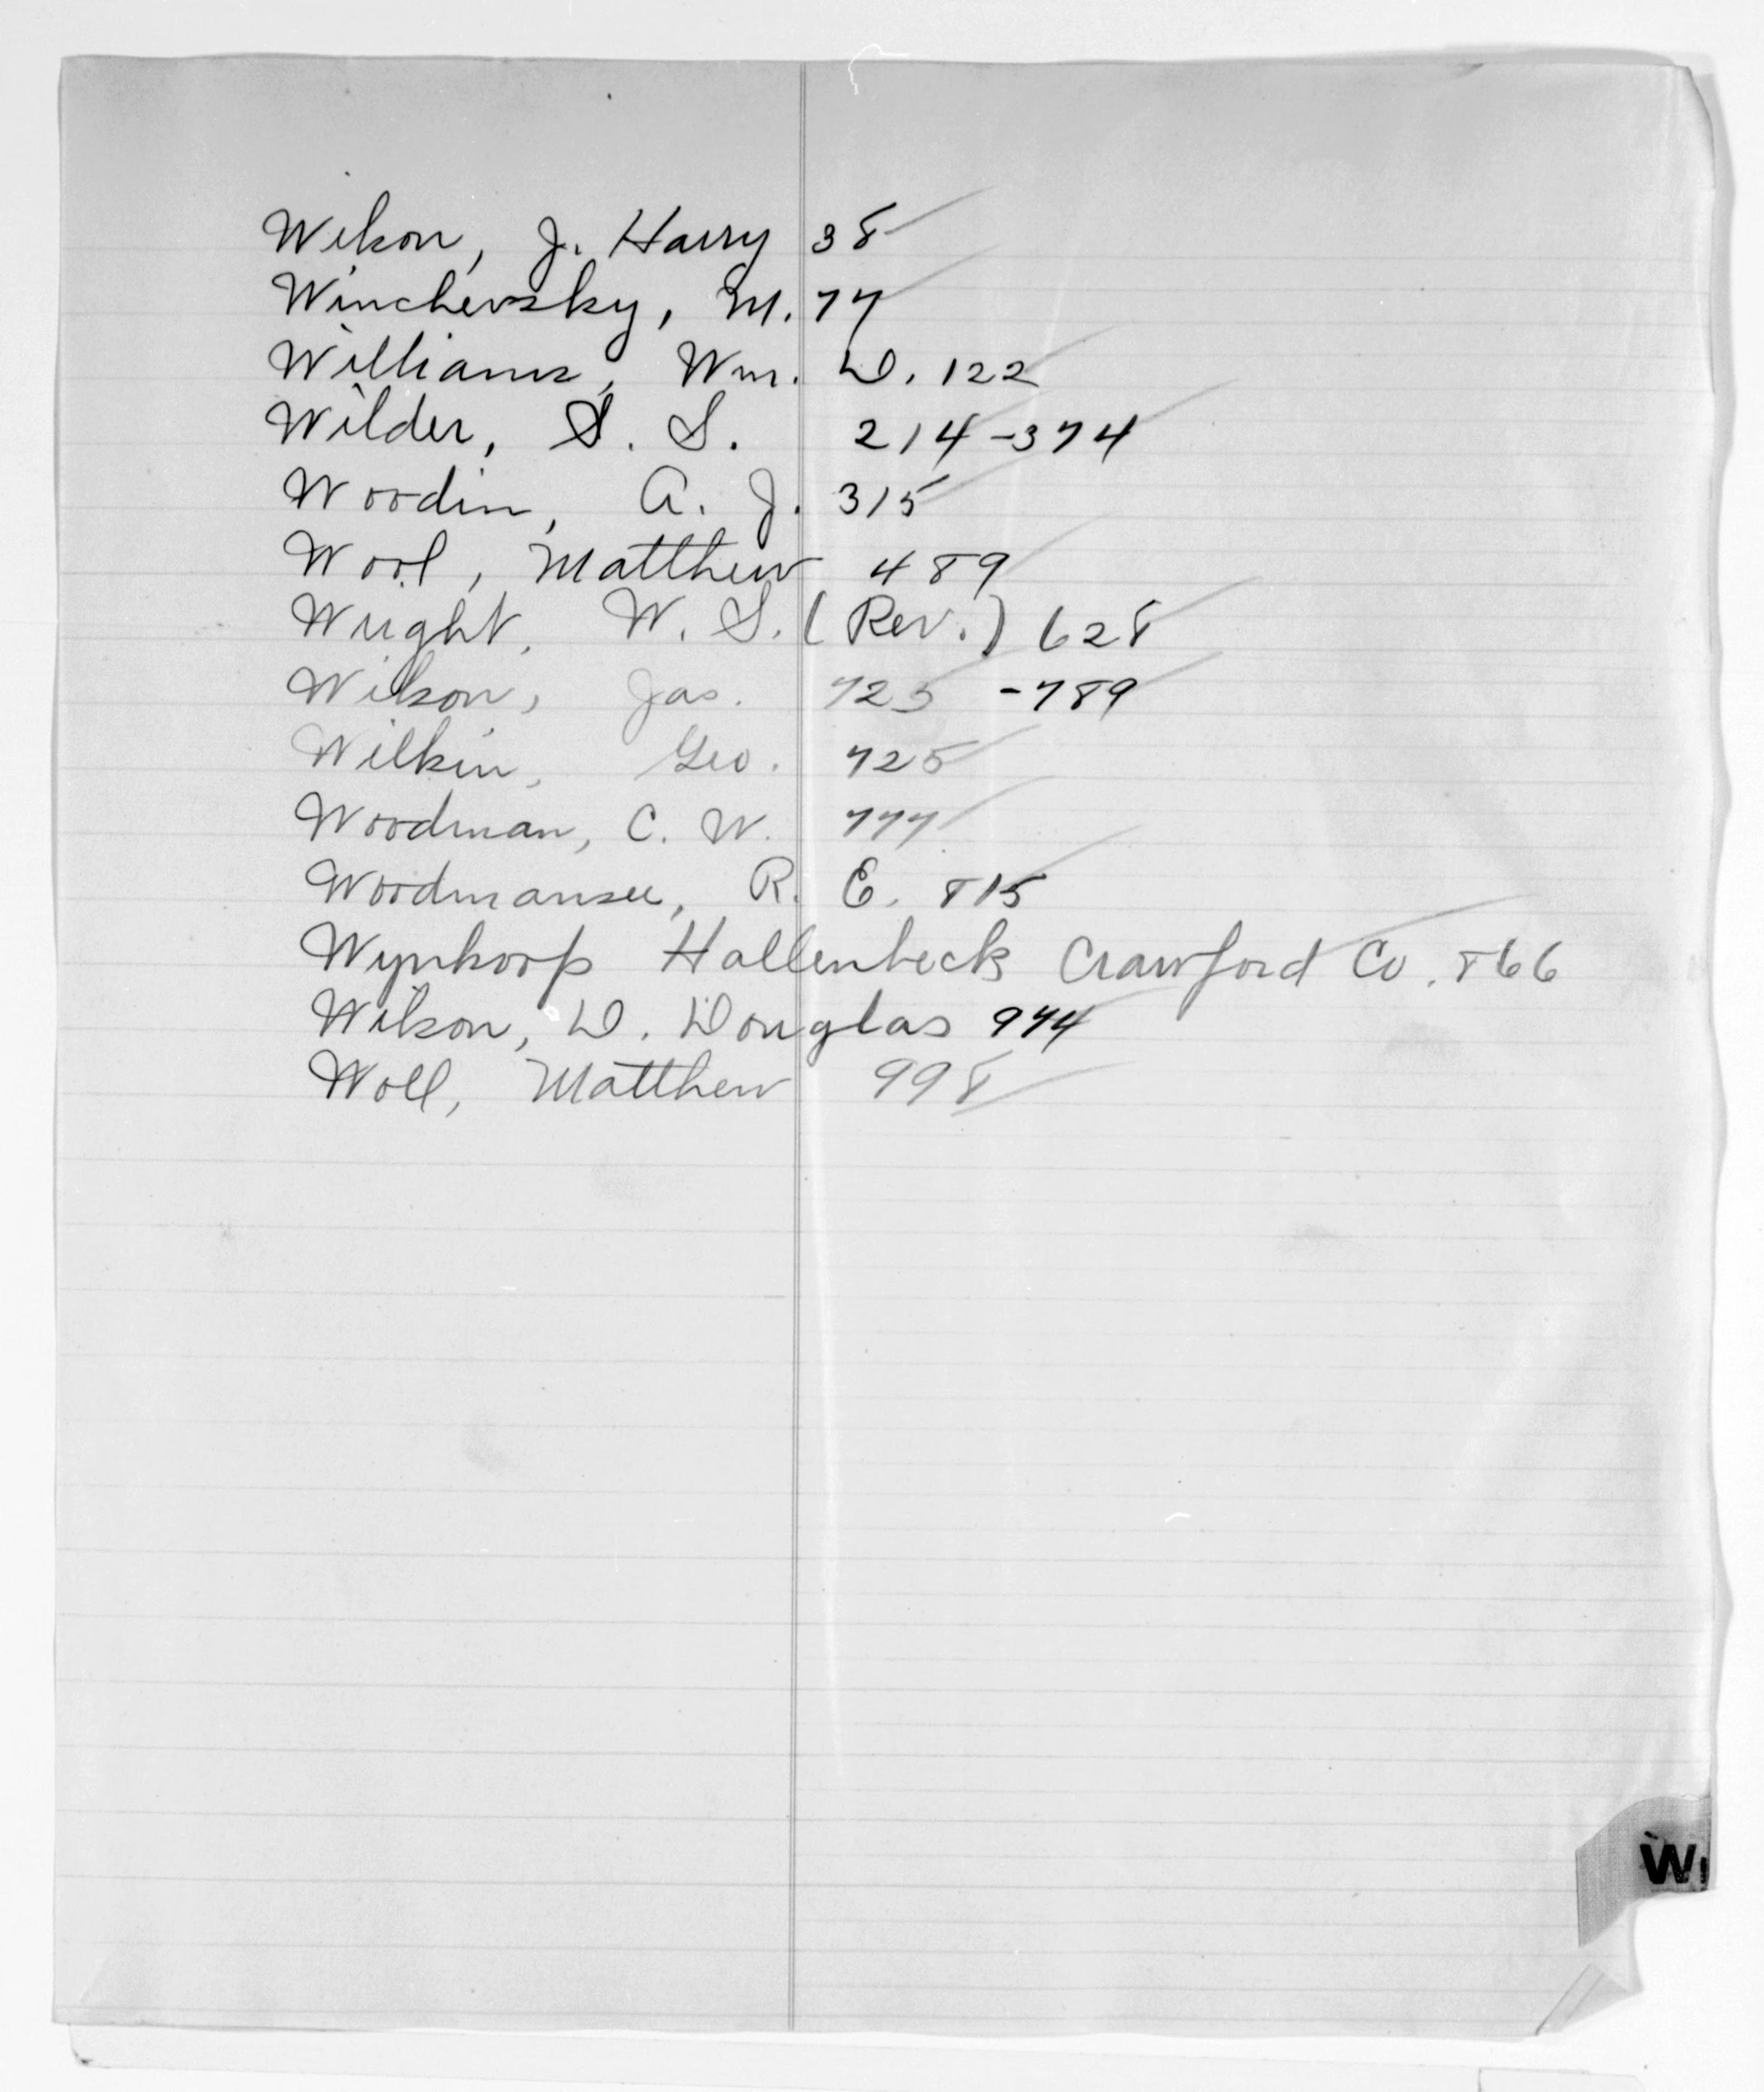 Wilson, J. Harry 38
Winchevsky, M. 77
Williams, Wm. D. 122
Wilder, S. S. 214-374
Woodin, A. J. 315
Wool, Matthew 489
Wright, W. S. (Rev.) 628
Wilson, Jas. 725 -789
Wilkin, Geo. 725
Woodman, C. W. 777
Woodmansee, R. E. 815
Wynkoop Hallenbeck Crawford Co. 866
Wilson, D. Douglas 974
Woll, Matthew 998
W